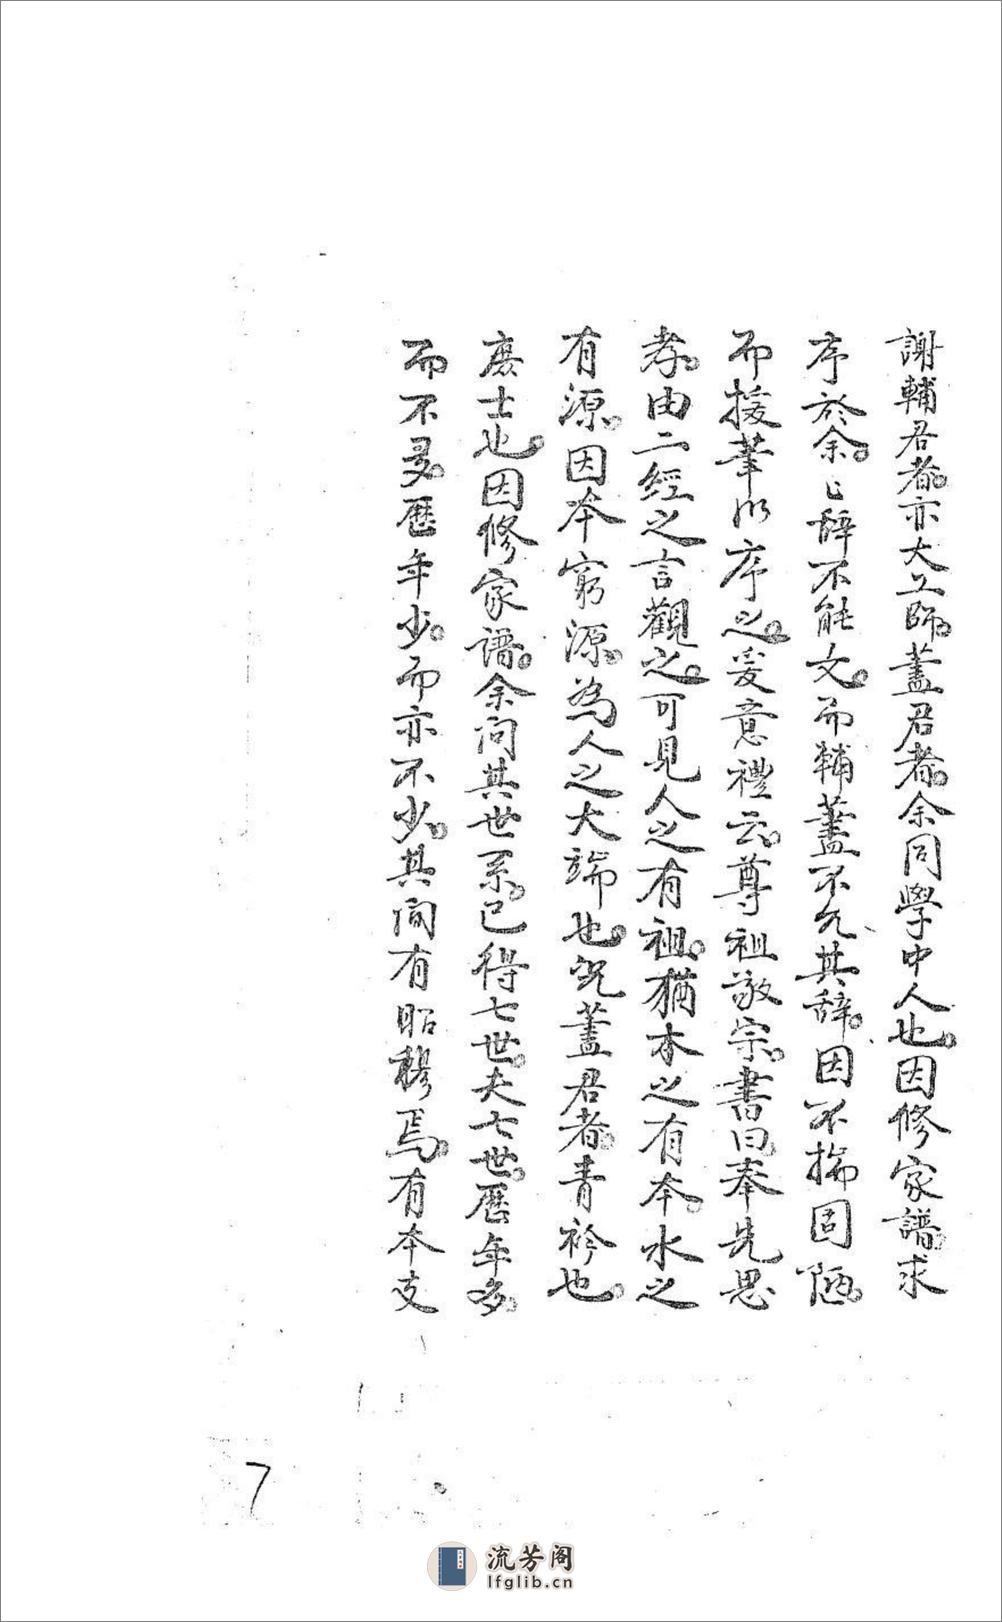 謝輔君者。亦大工師。蓋君者。余同學中人也。因修家譜。求
序於余。〻辞不能文。而輔蓋不允其辞。因不揣固陋。
而援筆以序之。爰意禮云。尊祖敬宗。書曰。奉先思
孝。由二經之言觀之。可見人之有祖。猶木之有本。水之
有源。因本窮源。為人之大端也。况蓋君者。青衿也。
庶士也。因修家譜。余问其世系。已得七世。夫七世。歷年多。
而不多。歷年少。而亦不少。其间有昭穆焉。有本支
7
流芳阁
lfglib.cn